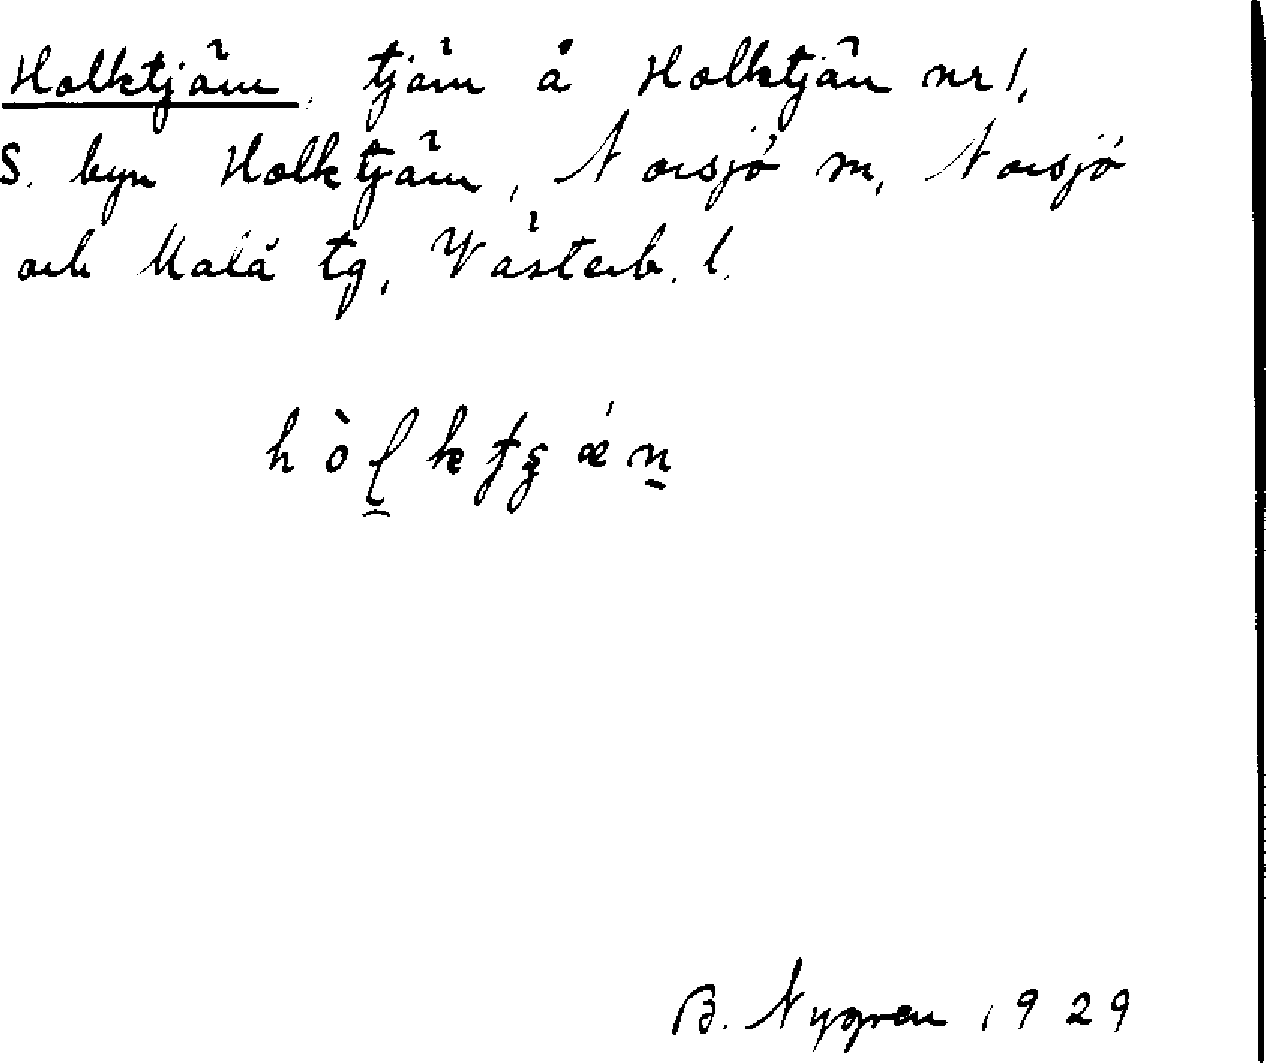 Holktjärn, tjärn å Holktjärn nr 1,
S. byn Holktjärn, Norsjö sn, Norsjö
och Malå tg, Västerb. l.
B. Nygren 1929